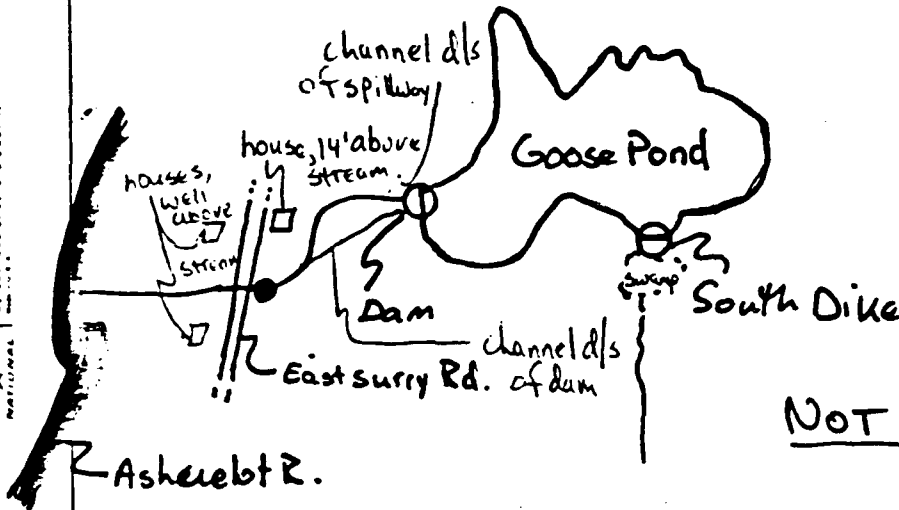 channel d/s
of spillway
house, 14' above
stream.
houses,
well
above
stream
Goose Pond
Dam
swamp
South Dike
channel d/s
of dam
East Surry Rd.
NOT
Ashuelot R.
NATIONAL